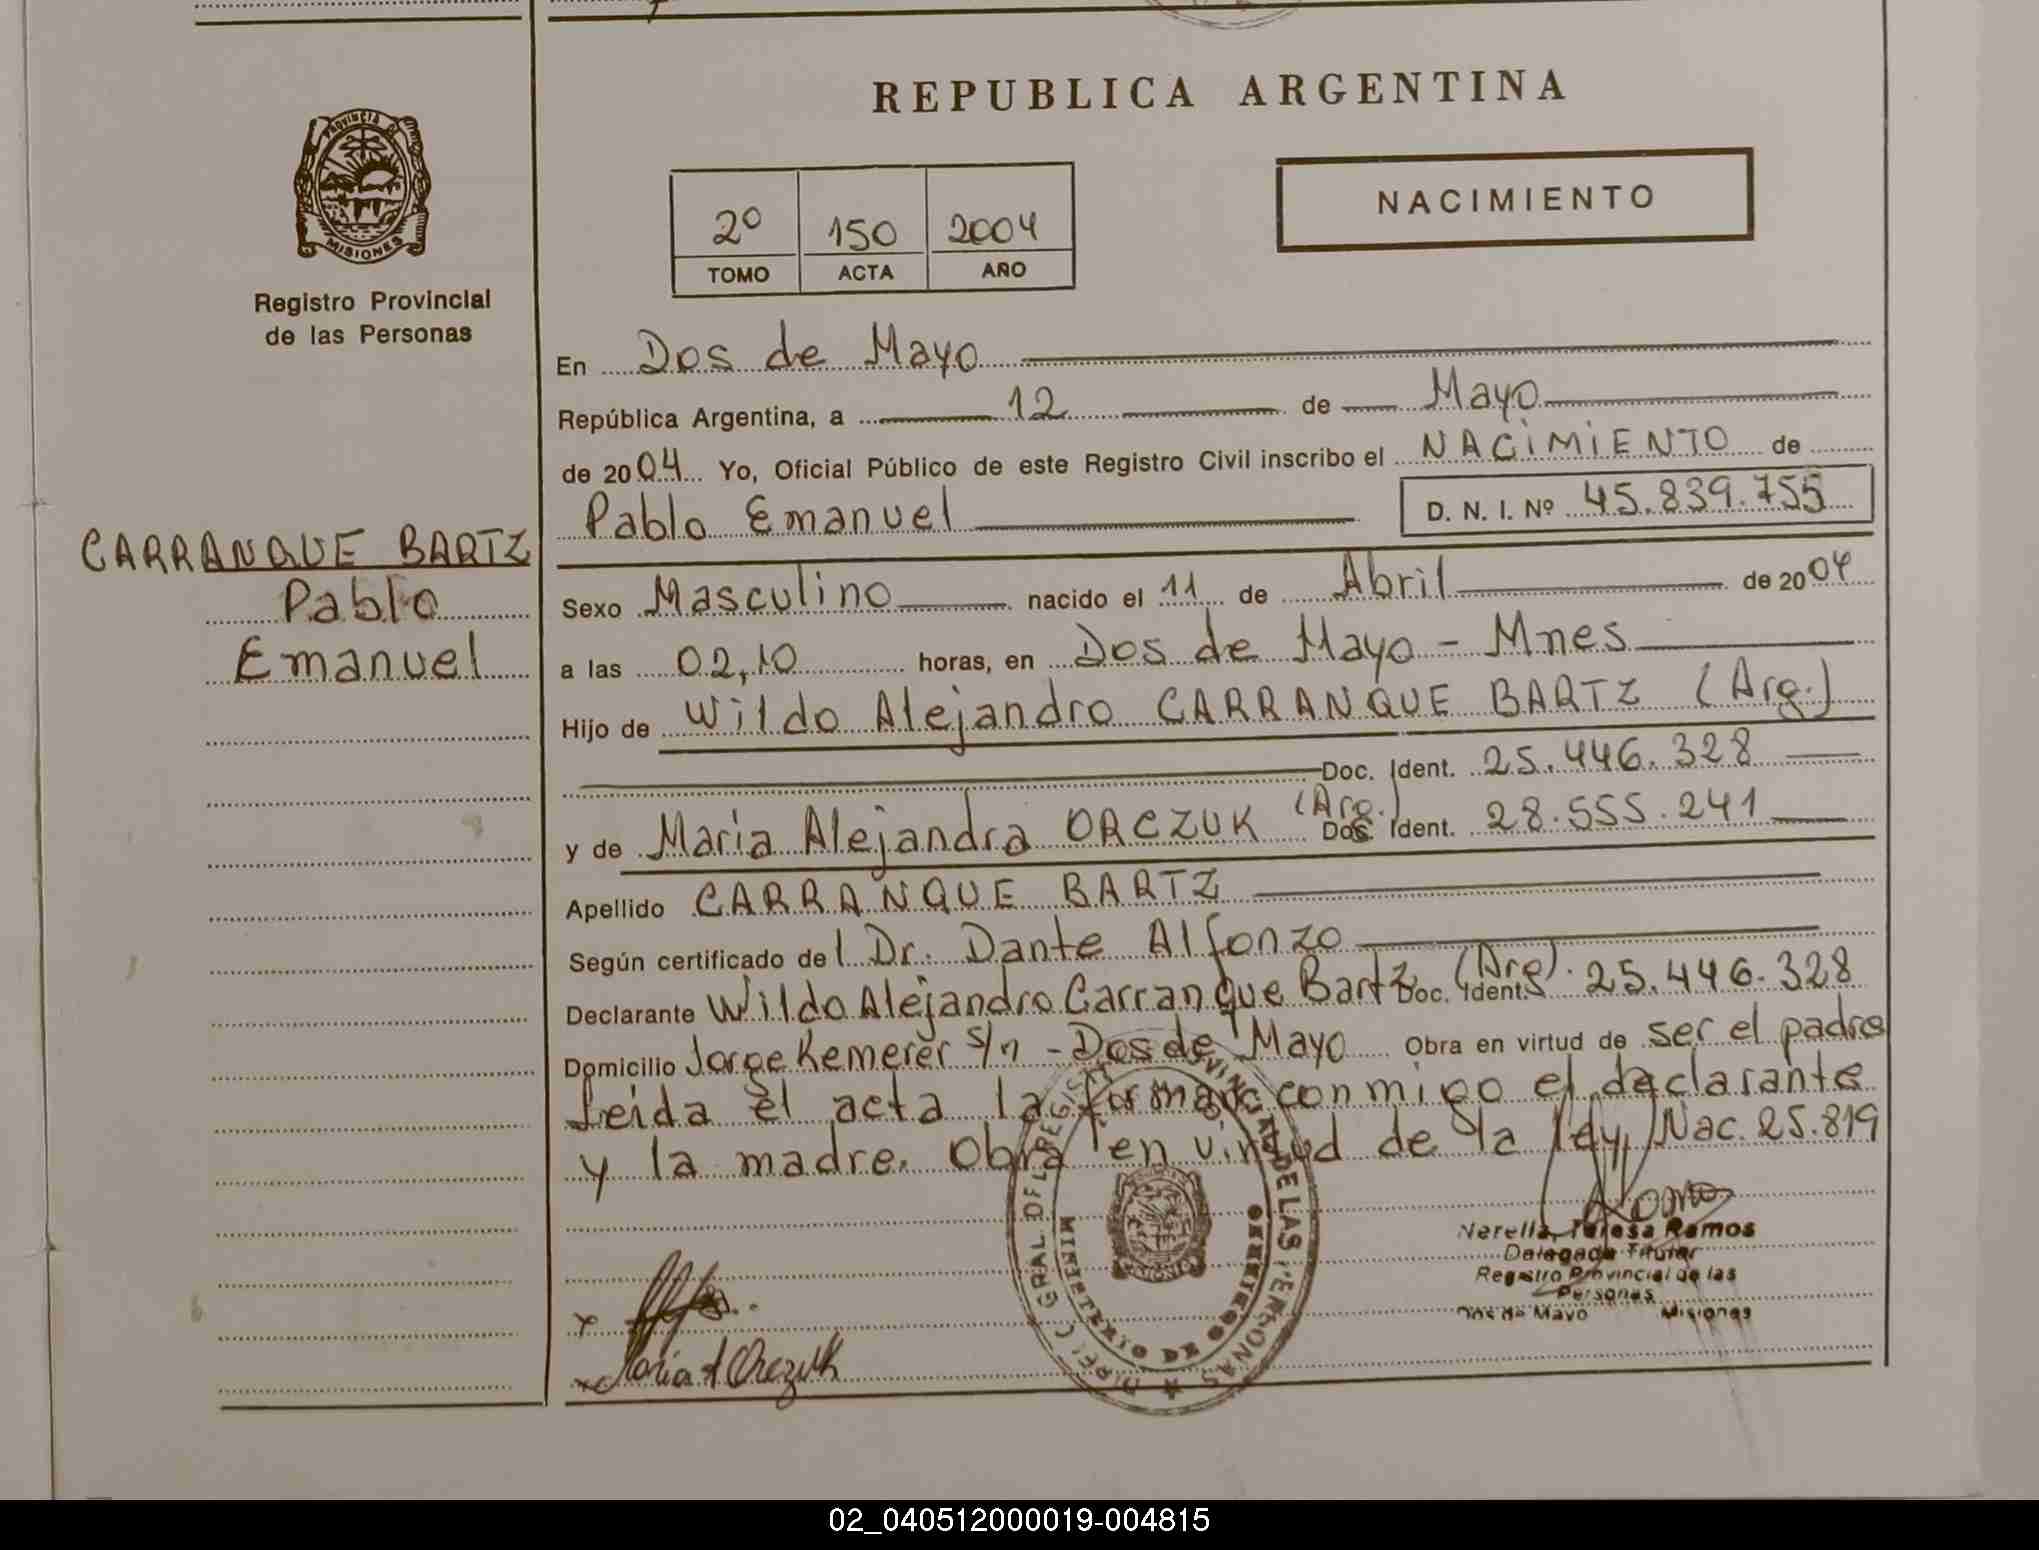 REPUBLICA ARGENTINA
PROVINCIA DE
MISIONES
Registro Provincial
de las Personas
2º 150 2004
TOMO ACTA AÑO
NACIMIENTO
CARRANQUE BARTZ
Pablo
Emanuel
En Dos de Mayo
República Argentina, a 12 de Mayo
de 2004 Yo, Oficial Público de este Registro Civil inscribo el NACIMIENTO de
Pablo Emanuel D. N. I. Nº 45.839.755
Sexo Masculino nacido el 11 de Abril de 2004
a las 02,10 horas, en Dos de Mayo - Mnes
Hijo de Wildo Alejandro CARRANQUE BARTZ (Arg.)
Doc. Ident. 25.446.328
y de Maria Alejandra ORCZUK (Arg.) Doc. Ident. 28.555.241
Apellido CARRANQUE BARTZ
Según certificado del Dr. Dante Alfonzo
Declarante Wildo Alejandro Carranque Bartz (Arg). Doc. Ident. 25.446.328
Domicilio Jorge Kemerer s/n - Dos de Mayo Obra en virtud de ser el padre
Leida el acta la forman conmigo el declarante
y la madre. Obra en virtud de la ley Nac. 25.819
DIREC. GRAL DEL REGISTRO PROVINCIAL DE LAS PERSONAS
MINISTERIO DE GOBIERNO
Ramos
Nerella Teresa Ramos
Delegada Titular
Registro Provincial de las
Personas
Dos de Mayo Misiones
Maria A Orczuk
02_040512000019-004815